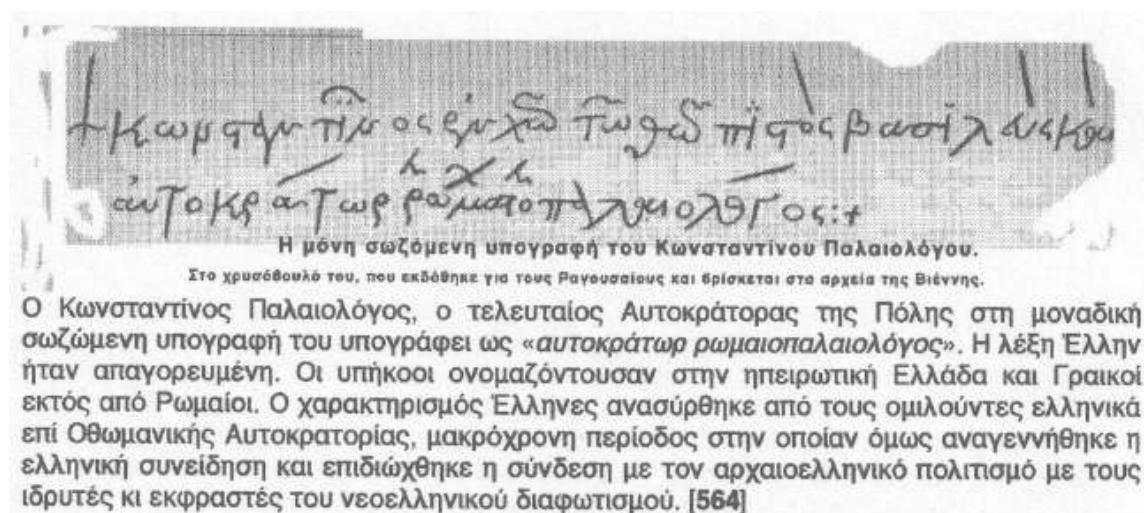 + κωνσταντῖνος ἐν χῶ τῶ θῶ πιστὸς βασιλεὺς καὶ
αὐτοκράτωρ ῥωμαίων ὁ παλαιολόγος:+
Η μόνη σωζόμενη υπογραφή του Κωνσταντίνου Παλαιολόγου.
Στο χρυσόβουλό του, που εκδόθηκε για τους Ραγουσαίους και βρίσκεται στα αρχεία της Βιέννης.
Ο Κωνσταντίνος Παλαιολόγος, ο τελευταίος Αυτοκράτορας της Πόλης στη μοναδική
σωζόμενη υπογραφή του υπογράφει ως «αυτοκράτωρ ρωμαιοπαλαιολόγος». Η λέξη Έλλην
ήταν απαγορευμένη. Οι υπήκοοι ονομαζόντουσαν στην ηπειρωτική Ελλάδα και Γραικοί
εκτός από Ρωμαίοι. Ο χαρακτηρισμός Έλληνες ανασύρθηκε από τους ομιλούντες ελληνικά
επί Οθωμανικής Αυτοκρατορίας, μακρόχρονη περίοδος στην οποίαν όμως αναγεννήθηκε η
ελληνική συνείδηση και επιδιώχθηκε η σύνδεση με τον αρχαιοελληνικό πολιτισμό με τους
ιδρυτές κι εκφραστές του νεοελληνικού διαφωτισμού. [564]